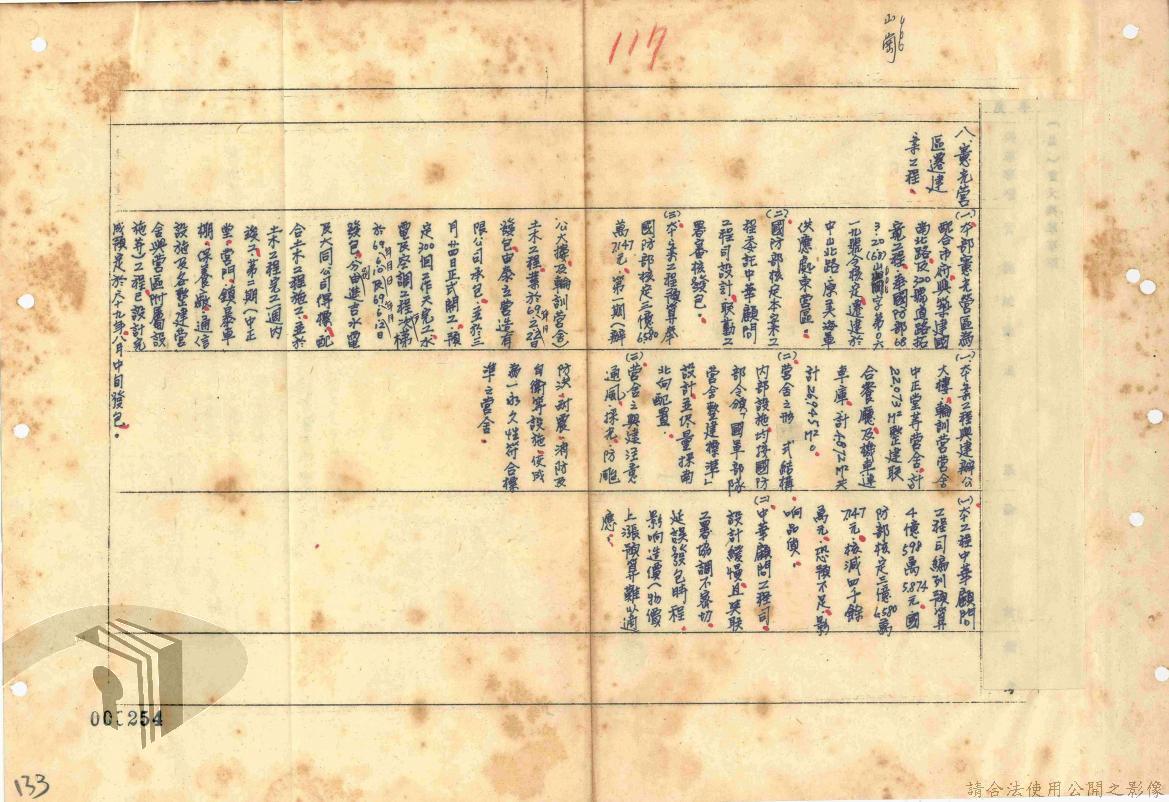 山崗
117
八、憲光營
區遷建
案工程。
(一)本部憲光營區為
配合市府興築建國
南北路及
號道路拓
寬工程,奉國防部68
3.20(68)山崗字第
一九號令核定遷建於
中山北路原美海軍
供應處東營區。
(二)國防部核定本案工
程委託中華顧問
工程司設計,聯勤工
署審核發包。
(三)本案工程預算奉
國防部核定三億6580
萬7147元,第一期(辦
公大樓及輪訓營舍)
土木工程業於69
發包由泰立營造有
限公司承包,並於三
月廿四日正式開工,預
定300個工作天完工,水
電及空調工程
於69.6.10及69.6.12日
發包,分別由進吉水電
及大同公司得標,配
合土木工程施工,並於
土木工程完工一週內
竣工,第二期(中正
堂、營門、鎖暴車
棚、保養廠、通信
設施及各整建營
舍與營區附屬設
施等)工程已設計完
成預定於六十九年八月中旬發包。
(一)本案工程興建辦公
大樓、輪訓營營舍
中正堂等營舍,計
22073M²,整建聯
合餐廳及機車連
車庫,計4872M²,共
計26945M²。
(二)營舍之形式、結構
內部設施均按國防
部令頒「國軍部隊
營舍整建標準」
設計,並保量採南
北向配置。
(三)營舍之興建注意
通風、採光、防颱
防洪、耐震、消防及
自衛等設施,使成
為一永久性符合標
準之營舍。
(一)本工程中華顧問
工程司編列預算
4億598萬5874元,國
防部核定三億6580萬
7147元,核減四千餘
萬元,恐預不足,影
响品質。
(二)中華顧問工程司
設計緩慢,且與聯
工署協調不密切,
延誤發包時程,
影响造價(物價
上漲預算難以適
應。
254
133
請合法使用公開之影像